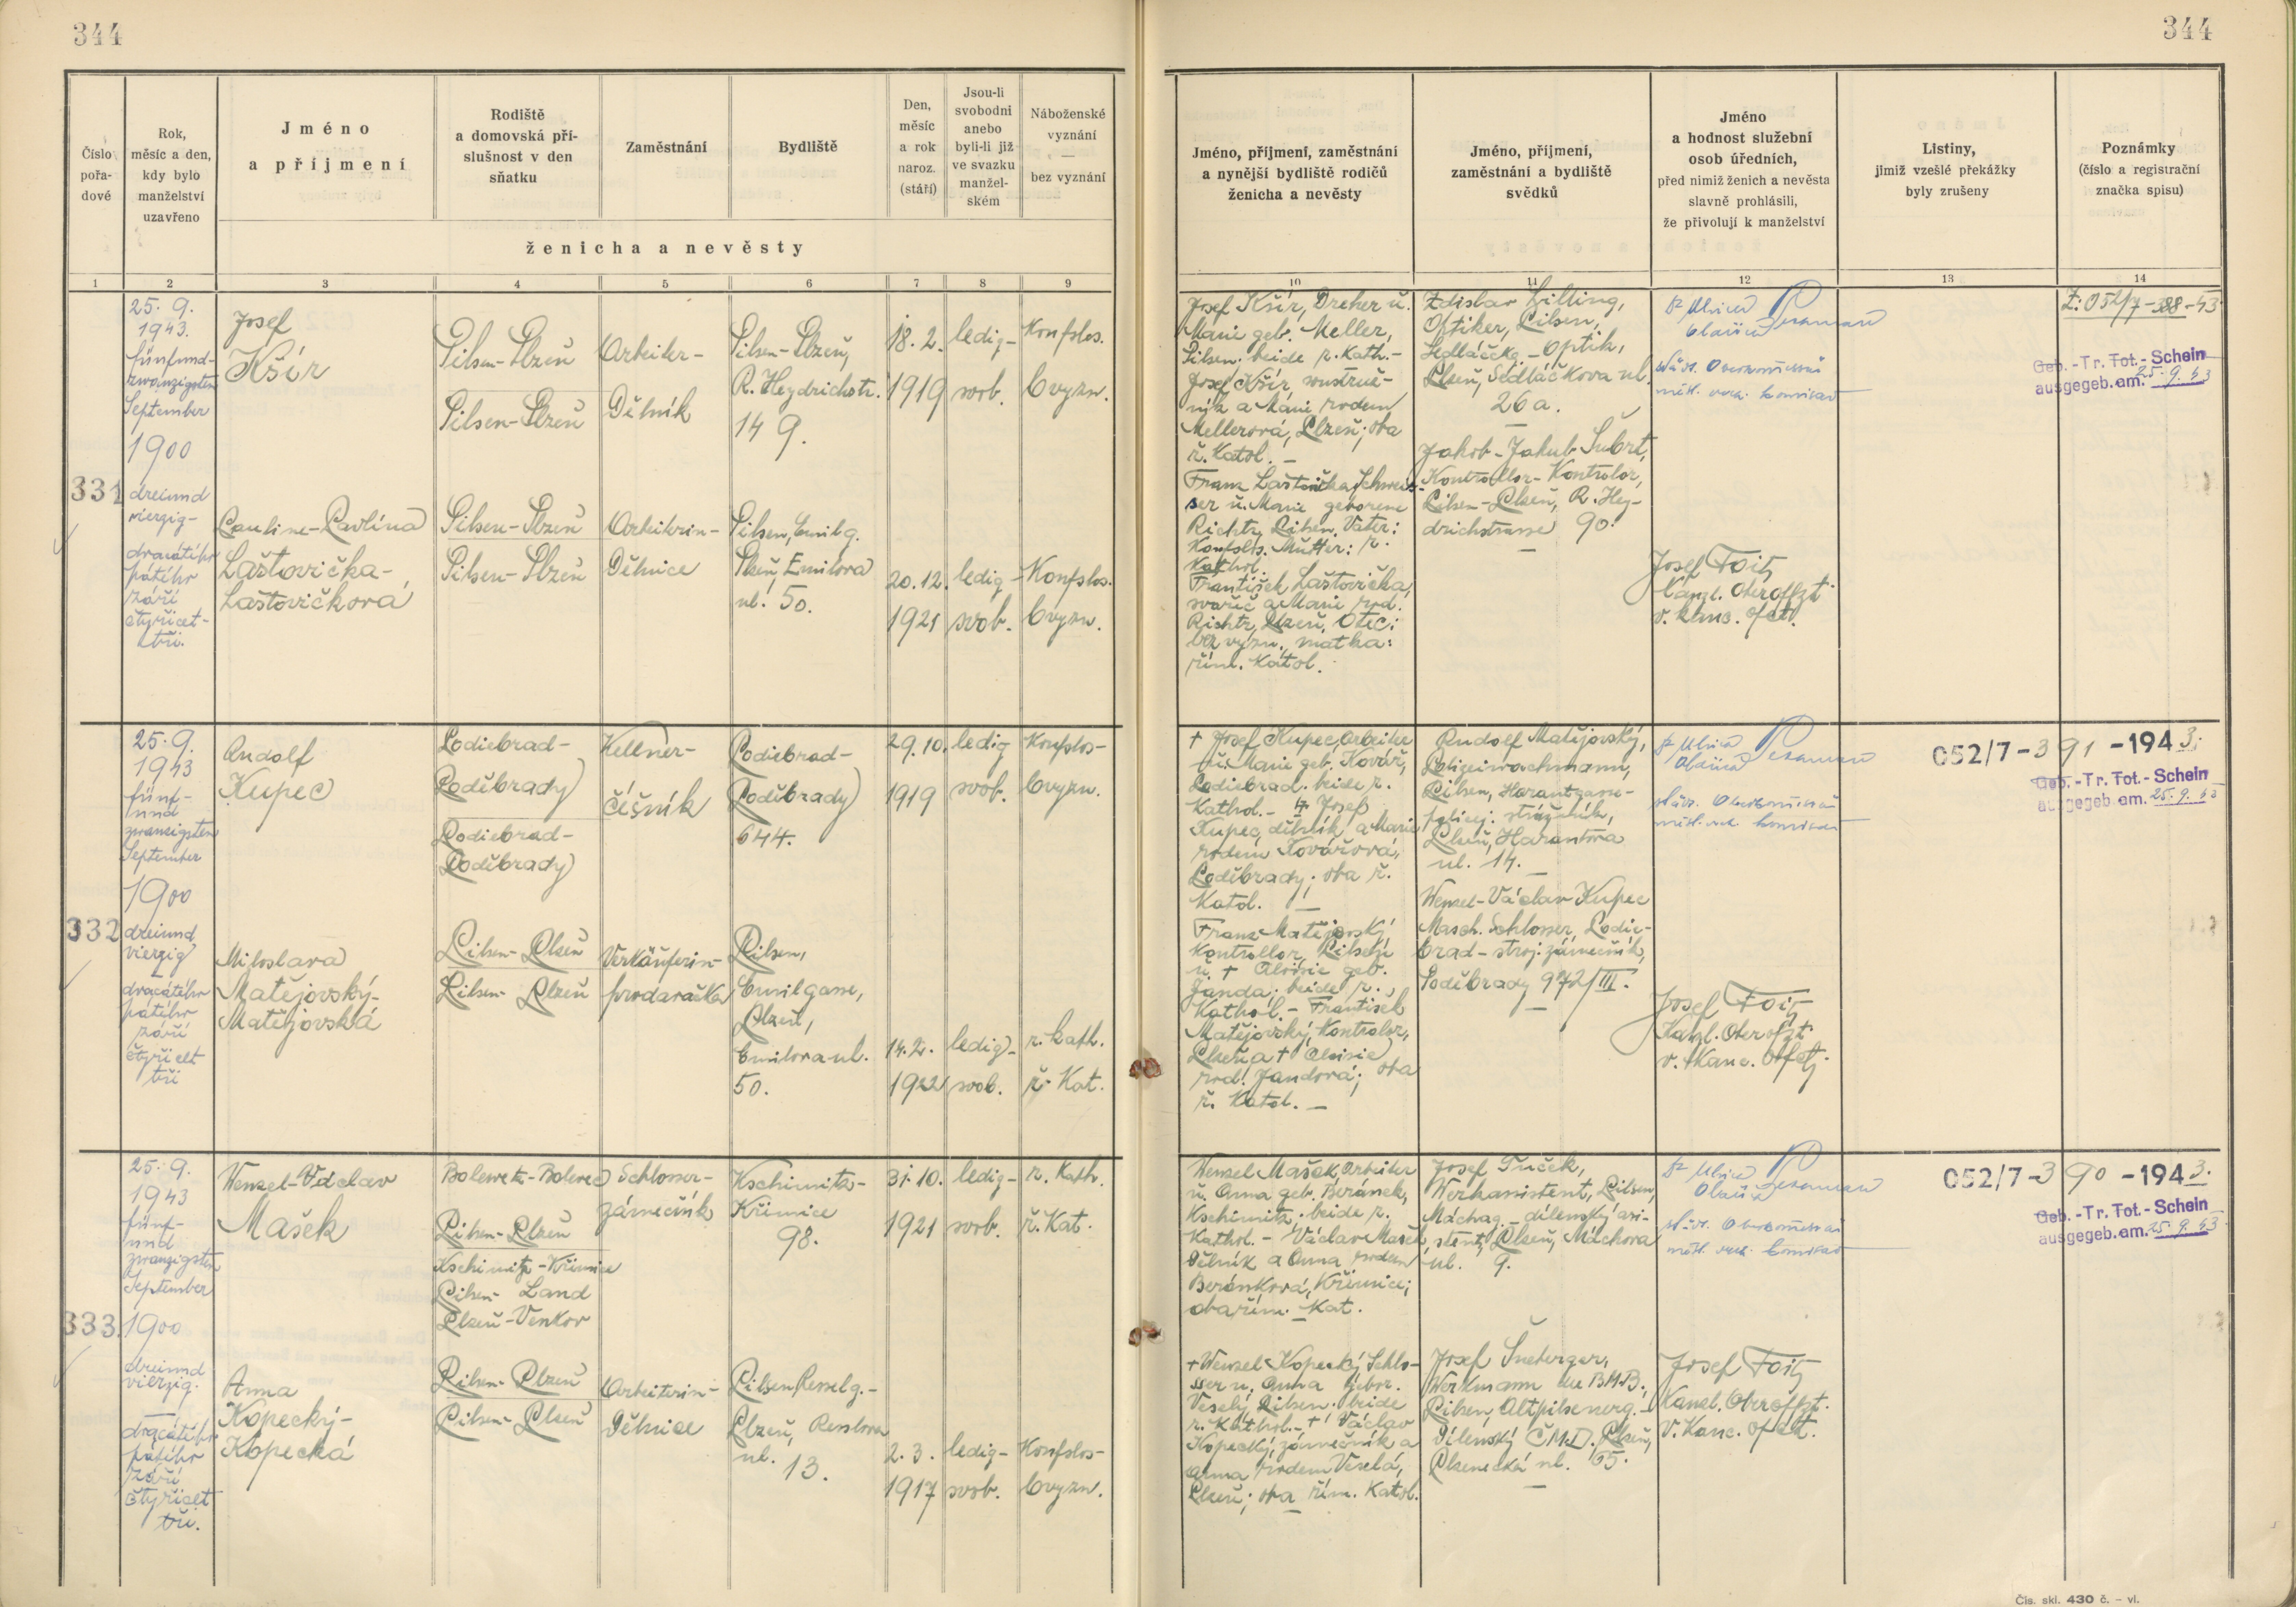 344
344
Číslo
pořa-
dové
Rok,
měsíc a den,
kdy bylo
manželství
uzavřeno
Jméno
a příjmení
Rodiště
a domovská pří-
slušnost v den
sňatku
Zaměstnání
Bydliště
Den,
měsíc
a rok
naroz.
(stáří)
Jsou-li
svobodni
anebo
byli-li již
ve svazku
manžel-
ském
Náboženské
vyznání
—
bez vyznání
ženicha a nevěsty
Jméno, příjmení, zaměstnání
a nynější bydliště rodičů
ženicha a nevěsty
Jméno, příjmení,
zaměstnání a bydliště
svědků
Jméno
a hodnost služební
osob úředních,
před nimiž ženich a nevěsta
slavně prohlásili,
že přivolují k manželství
Listiny,
jimiž vzešlé překážky
byly zrušeny
Poznámky
(číslo a registrační
značka spisu)
1 2 3 4 5 6 7 8 9 10 11 12 13 14
331
25. 9.
1943.
fünfund-
zwanzigsten
September
1900
dreiund
vierzig-
dvacátého
pátého
září
čtyřicet-
tři.
Josef
Kšír
Pilsen-Plzeň
Pilsen-Plzeň
Arbeiter-
Dělník
Pilsen-Plzeň,
R. Heydrichstr.
149.
18. 2.
1919
ledig-
svob.
Konfslos.
bvyzn.
Pauline-Pavlína
Laštovička-
Laštovičková
Pilsen-Plzeň
Pilsen-Plzeň
Arbeiterin-
Dělnice
Pilsen, Emilg.
Plzeň, Emilova
ul. 50.
20. 12.
1921
ledig-
svob.
Konfslos.
bvyzn.
Josef Kšír, Dreher u.
Marie geb. Meller,
Pilsen. beide r. Kath.-
Josef Kšír, soustruž-
ník a Marie rodem
Mellerová, Plzeň; oba
ř. Katol. —
Franz Laštovička, Schweis-
ser u. Marie geborene
Richtr, Pilsen. Vater:
Konfslos. Mutter: r.
Kathol.
František Laštovička,
svařeč a Marie rod.
Richtr, Plzeň. Otec:
bez vyzn., matka:
řím. Katol.
Zdislav Zilling,
Optiker, Pilsen,
Sedláčkg. - Optik,
Plzeň, Sedláčkova ul.
26a.
Jakob-Jakub Šubrt,
Kontrollor-Kontrolor,
Pilsen-Plzeň, R. Hey-
drichstrasse 90.
Josef Foitz
Kanzl. Oberoffzt.
v. kanc. ofct.
Z: 052/7-388-43
Geb.-Tr.Tot.-Schein
ausgegeb.am. 25. 9. 43
332
25. 9.
1943
fünf-
und
zwanzigsten
September
1900
dreiund
vierzig
dvacátého
pátého
září
čtyřicet
tři
Rudolf
Kupec
Podiebrad-
Poděbrady
Podiebrad-
Poděbrady
Kellner-
číšník
Podiebrad-
Poděbrady
644.
29. 10.
1919
ledig
svob.
Konfslos-
bvyzn.
Miloslava
Matějovský-
Matějovská
Pilsen-Plzeň
Pilsen-Plzeň
Verkäuferin-
prodavačka
Pilsen,
Emilgasse,
Plzeň,
Emilova ul.
50.
14. 2.
1922
ledig-
svob.
r. Kath.
ř. Kat.
+ Josef Kupec, Arbeiter
u. Marie geb. Kovář,
Podiebrad. beide r.
Kathol. - + Josef
Kupec, dělník a Marie
rodem Kovářová,
Poděbrady; oba ř.
Katol. —
Franz Matějovský
Kontrollor, Pilsen
u. + Aloisie geb.
Janda; beide r.
Kathol. - František
Matějovský, Kontrolor,
Plzeň a + Aloisie
rod. Jandová; oba
ř. Katol. —
Rudolf Matějovský,
Polizeiwachmann,
Pilsen, Harantgasse-
policej. strážník,
Plzeň, Harantova
ul. 14.
Wenzel-Václav Kupec
Masch. Schlosser, Podie-
brad-stroj. zámečník,
Poděbrady 972/III.
Josef Foitz
Kanzl. Oberoffzt
v. Kanc. offct.
052/7-391-1943.
Geb.-Tr.Tot.-Schein
ausgegeb.am. 25. 9. 43
333
25. 9.
1943
fünf-
und
zwanzigsten
September
1900
dreiund
vierzig.
dvacátého
pátého
září
čtyřicet
tři.
Wenzel-Václav
Mašek
Bolewetz-Bolevec
Pilsen-Plzeň
Kschimitz-Křimice
Pilsen-Land
Plzeň-Venkov
Schlosser-
zámečník
Kschimitz-
Křimice
98.
31. 10.
1921
ledig-
svob.
r. Kath.
ř. Kat.
Anna
Kopecký-
Kopecká
Pilsen-Plzeň
Pilsen-Plzeň
Arbeiterin-
Dělnice
Pilsen, Resselg.-
Plzeň, Resslova
ul. 13.
2. 3.
1917
ledig-
svob.
Konfslos-
bvyzn.
Wenzel Mašek, Arbeiter
u. Anna geb. Beránek,
Kschimitz. beide r.
Kathol. - Václav Mašek,
dělník a Anna rodem
Beránková, Křimice;
oba řím. Kat.
+ Wenzel Kopecký, Schlo-
sser u. Anna gebor.
Veselý, Pilsen. beide
r. Kathol. - + Václav
Kopecký, zámečník a
Anna rodem Veselá,
Plzeň; oba řím. Katol.
Josef Tuček,
Werkassistent, Pilsen,
Máchag. - dílenský asi-
stent, Plzeň, Máchova
ul. 9.
Josef Šneberger,
Werkmann der BMB.,
Pilsen, Altpilsenerg.-
Dílenský ČMD., Plzeň,
Plzenecká ul. 65.
Josef Foitz
Kanzl. Oberoffzt.
v. Kanc. ofct.
052/7-390-1943.
Geb.-Tr.Tot.-Schein
ausgegeb.am. 25. 9. 43
Čís. skl. 430 č. - vl.